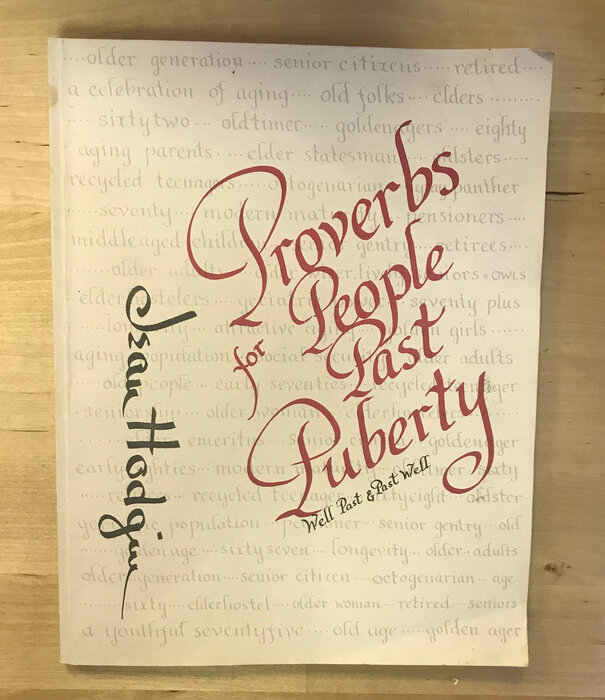 older generation .... senior citizens .... retired ....
a celebration of aging .... old folks .... elders ........
.... sixty two .... oldtimer .... goldenagers .... eighty
aging parents .... elder statesman .... oldsters ....
recycled teenagers .... octogenarian .... gray panther
.... seventy .... modern maturity .... pensioners ....
middle aged children .... senior gentry .... retirees ....
.... older adults .... older wiser lively seniors = OWLS
elderhostelers .... geriatric power .... seventy plus
.... longevity .... attractive aging .... golden girls ....
aging population .... social security .... older adults
.... old people .... early seventies .... recycled teenager
seniorship .... older woman .... elderhostelers ....
.... emeritus .... senior citizen .... goldenager
early eighties .... modern maturity .... oldtimer .... sixty
.... recycled teenager .... sixty eight .... oldster
population .... pensioner .... senior gentry .... old
.... golden age .... sixty seven .... longevity .... older adults
older generation .... senior citizen .... octogenarian .... age
.... sixty .... elderhostel .... older woman .... retired .... seniors
a youthful seventy five .... old age .... golden ager
Proverbs
for People
Past
Puberty
Well Past & Past Well
Jean Hodgin